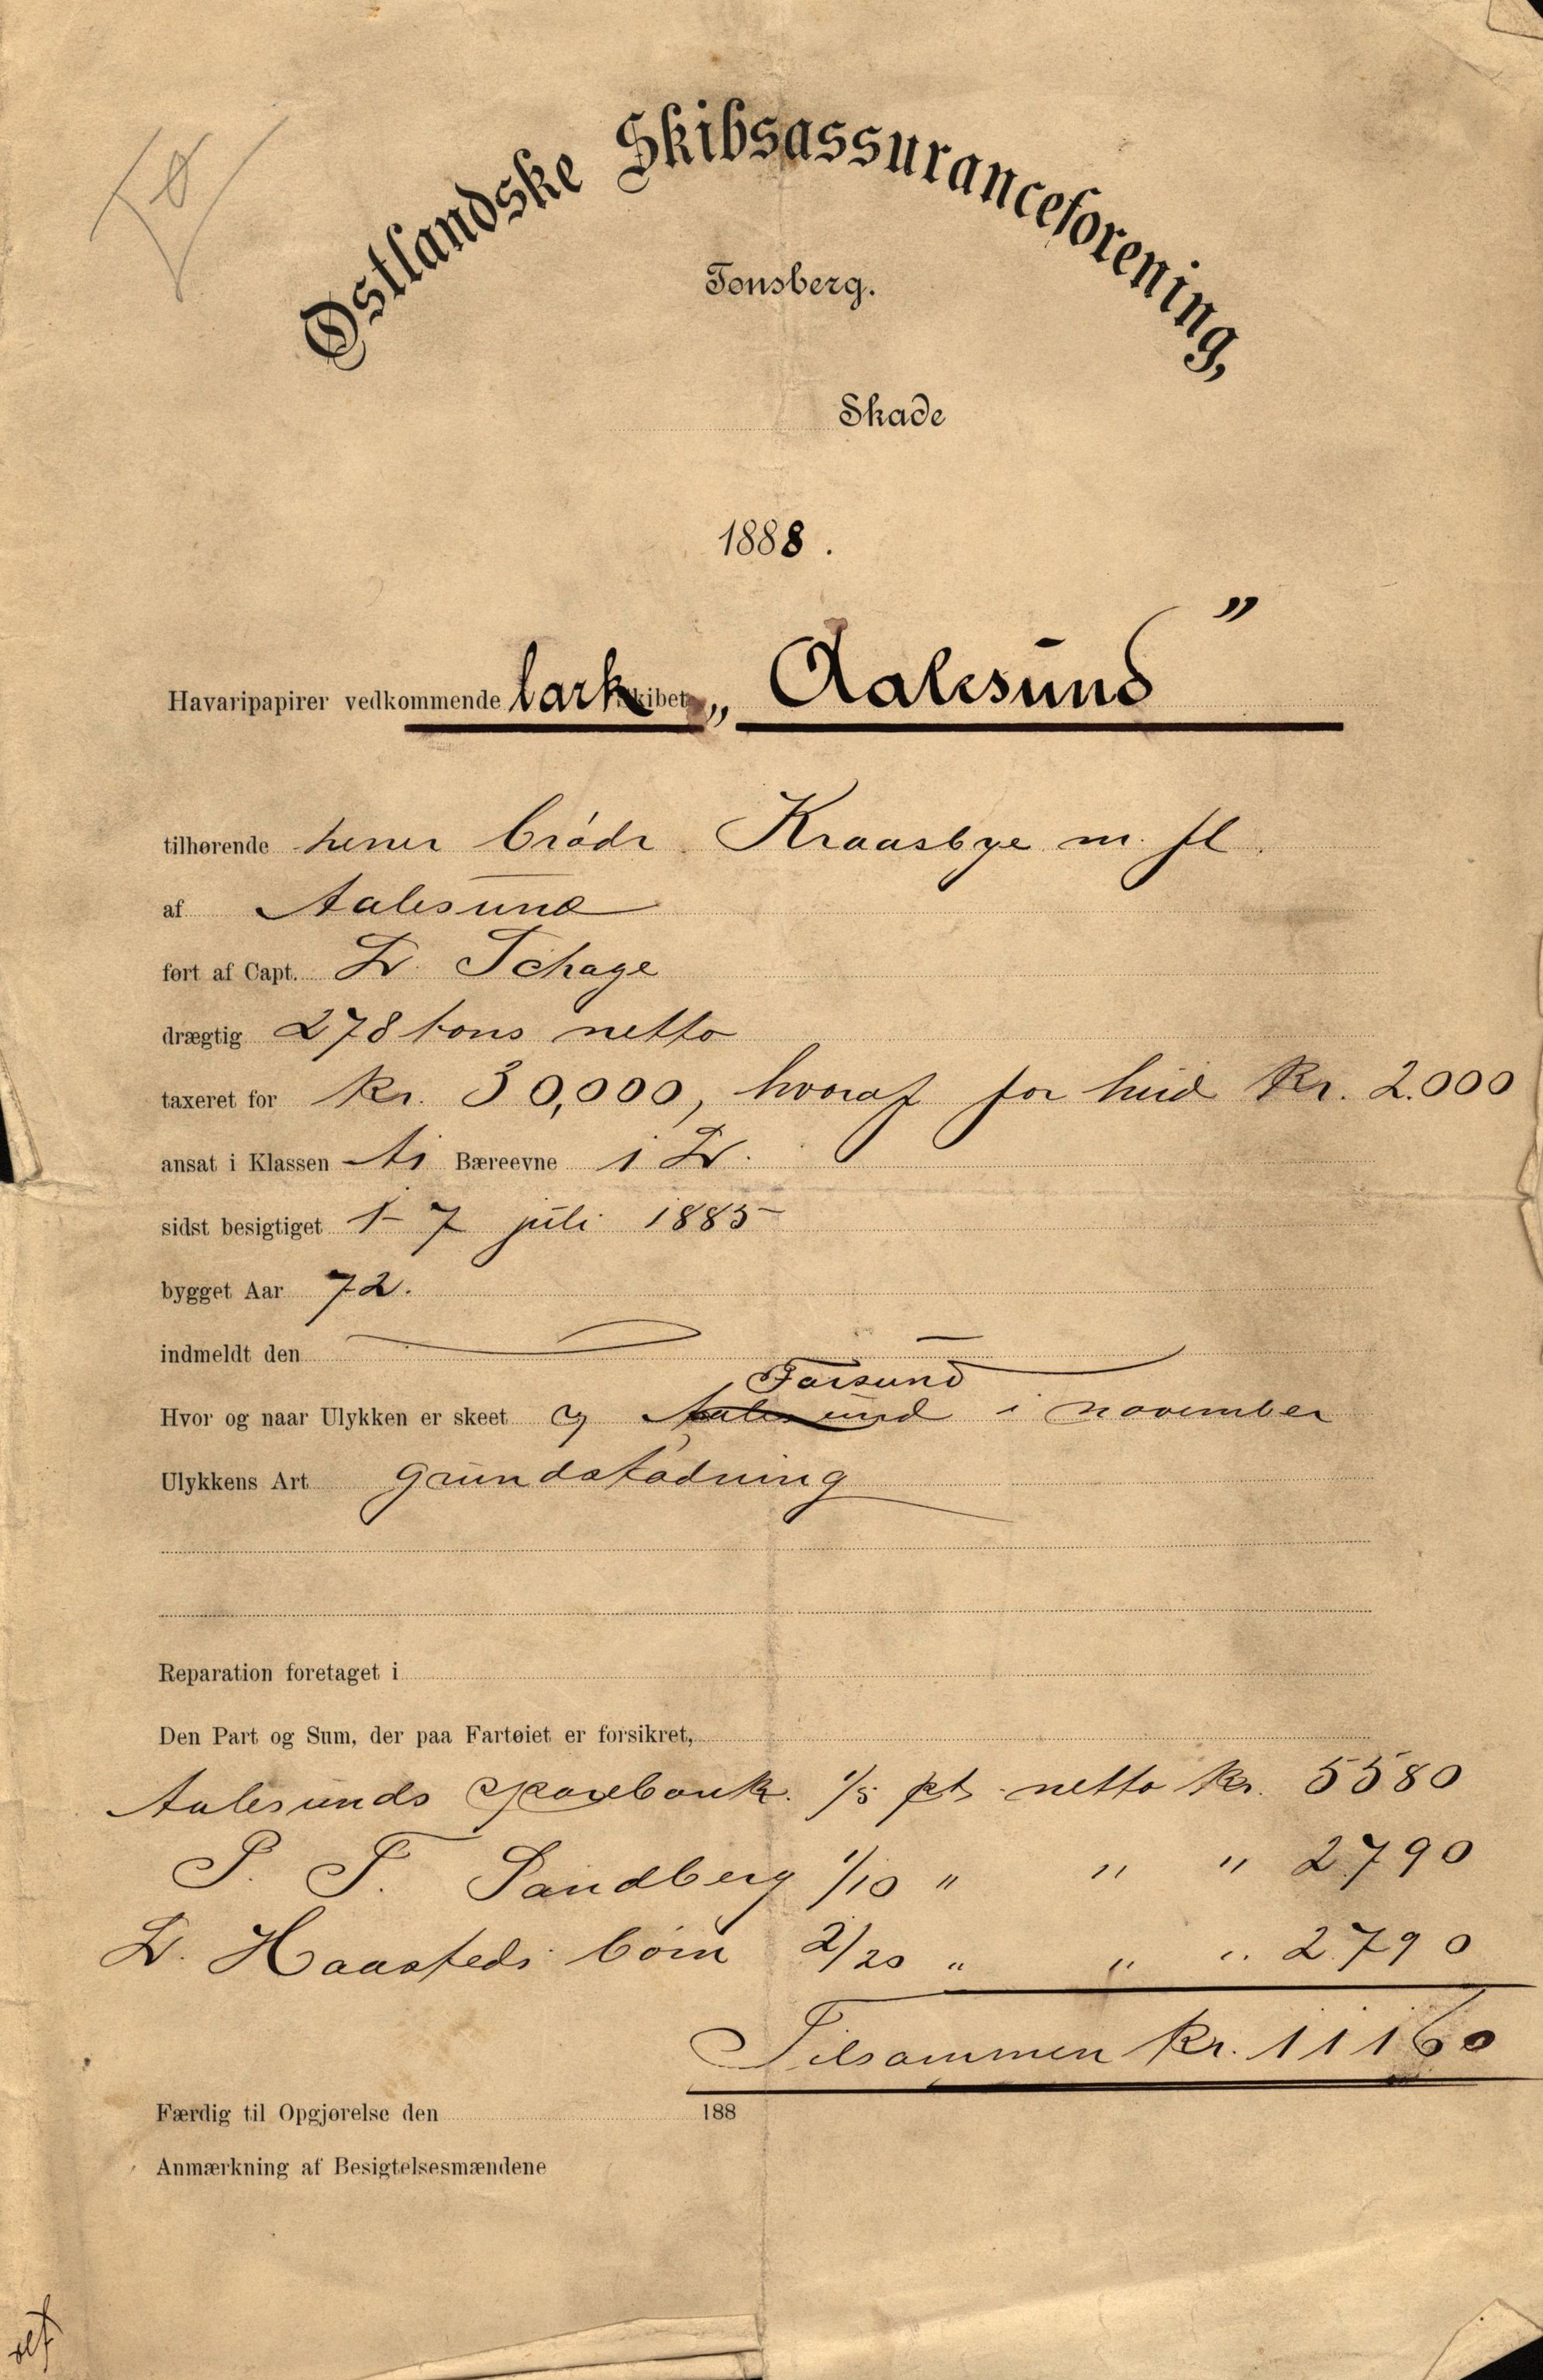 Østlandske Skibsassuranceforening,
Tønsberg.
Skade
1888.
Havaripapirer vedkommende bark skibet „Aalesund”
tilhørende herrer brødr. Kraasbye m. fl.
af Aalesund
ført af Capt. L. Schage
drægtig 278 tons netto
taxeret for kr. 30,000, hvoraf for hud kr. 2.000
ansat i Klassen A1 Bæreevne 1 L.
sidst besigtiget 7 juli 1885
bygget Aar 72.
indmeldt den
Farsund
Hvor og naar Ulykken er skeet Aalesund i november
Ulykkens Art grundstødning
Reparation foretaget i
Den Part og Sum, der paa Fartøiet er forsikret,
Aalesunds sparebank. 1/5 pt netto kr. 5580
P. F. Sandberg 1/10 " " " 2790
L. Haasteds børn 2/20 " " " 2790
Tilsammen kr. 11160
Færdig til Opgjørelse den 188
Anmærkning af Besigtelsesmændene